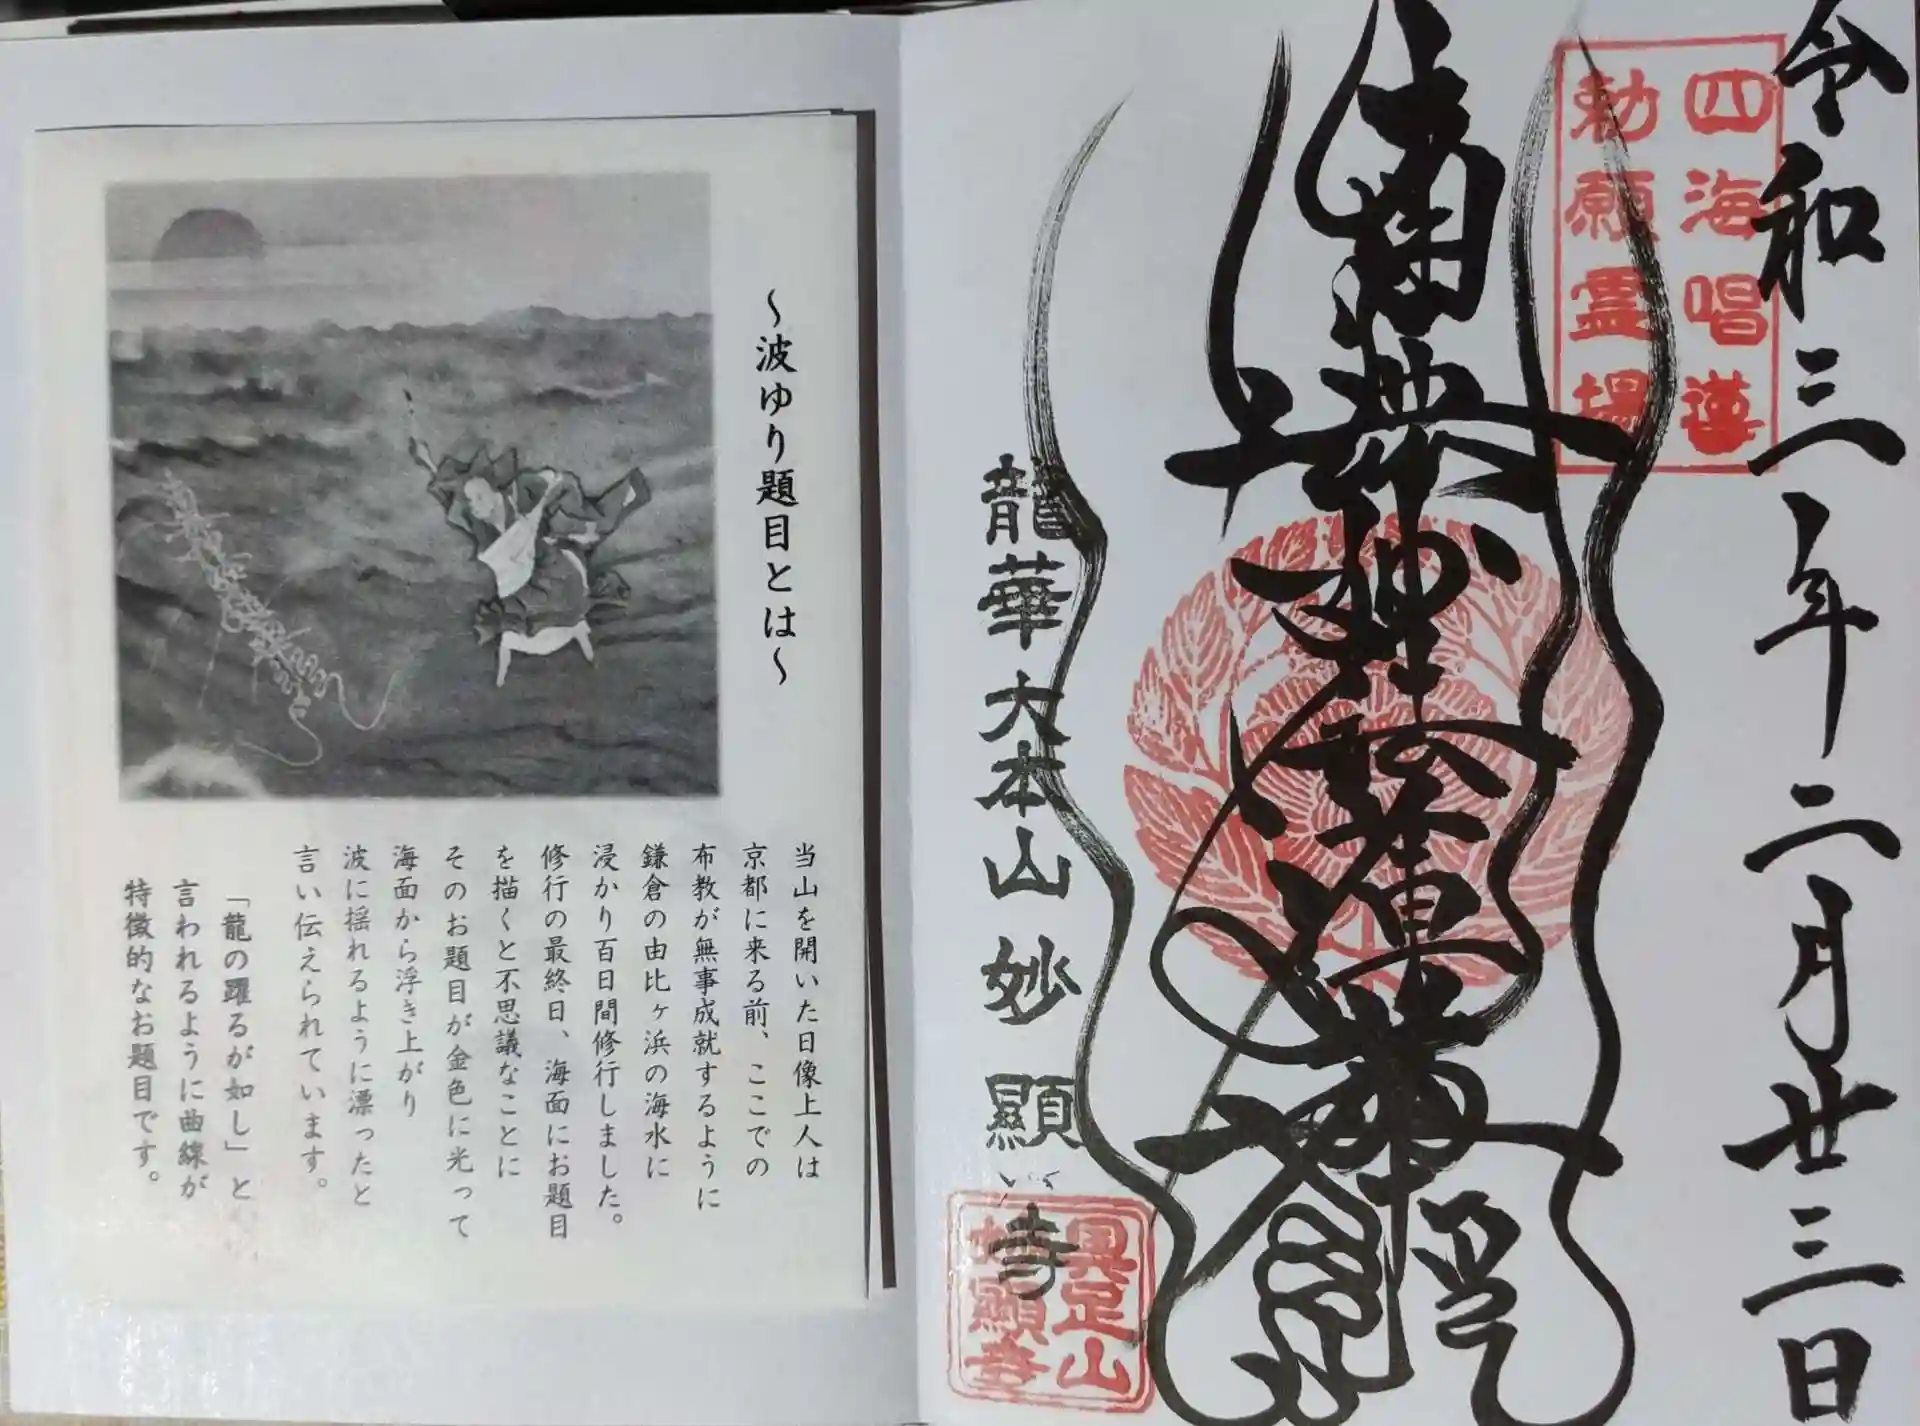 令和三年二月廿三日
四海唱導
勅願霊場
南無妙法蓮華経
龍華 大本山 妙顯寺
具足山
妙顯寺
～波ゆり題目とは～
当山を開いた日像上人は
京都に来る前、ここでの
布教が無事成就するように
鎌倉の由比ヶ浜の海水に
浸かり百日間修行しました。
修行の最終日、海面にお題目
を描くと不思議なことに
そのお題目が金色に光って
海面から浮き上がり
波に揺れるように漂ったと
言い伝えられています。
「龍の躍るが如し」と
言われるように曲線が
特徴的なお題目です。